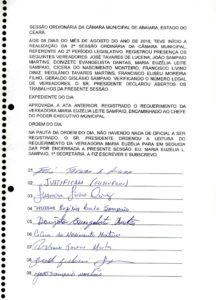 SESSÃO ORDINÁRIA DA CÂMARA MUNICIPAL DE ABAIARA, ESTADO DO CEARÁ.
AOS 08 DIAS DO MÊS DE AGOSTO DO ANO DE 2016, TEVE INÍCIO A REALIZAÇÃO DA 2ª SESSÃO ORDINÁRIA DA CÂMARA MUNICIPAL, REFERENTE AO 2º PERÍODO LEGISLATIVO. REGISTROU PRESENÇA OS SEGUINTES VEREADORES: JOSÉ TAVARES DE LUCENA, JOÃO SAMPAIO MARTINS, DONIZETE EVANGELISTA DANTAS, MARIA EUZÉLIA LEITE SAMPAIO, CÍCERA DO NASCIMENTO MONTEIRO, FRANCISCO LIVINO DINIZ, REGILÂNIO TAVARES MARTINS, FRANCISCO ELISEU MOREIRA FILHO, GERALDO GISLEANO SAMPAIO. VERIFICANDO O NÚMERO LEGAL DE VEREADORES, O SR. PRESIDENTE DECLAROU ABERTOS OS TRABALHOS DA PRESENTE SESSÃO.
EXPEDIENTE DO DIA
APROVADA A ATA ANTERIOR. REGISTRADO O REQUERIMENTO DA VEREADORA MARIA EUZÉLIA LEITE SAMPAIO, ENCAMINHADO AO CHEFE DO PODER EXECUTIVO MUNICIPAL.
ORDEM DO DIA
NA PAUTA DA ORDEM DO DIA, NÃO HAVENDO NADA DE OFICIAL A SER REGISTRADO, O SR. PRESIDENTE ORDENOU A LEITURA DO REQUERIMENTO DA VEREADORA MARIA EUZÉLIA PARA EM SEGUIDA DAR POR ENCERRADA A PRESENTE SESSÃO. EU, MARIA EUZÉLIA L. SAMPAIO, 1ª SECRETÁRIA, A FIZ ESCREVER E SUBSCREVO.
01
02 JUSTIFICOU
03
04 Maria Euzélia Leite Sampaio
05 Donizete Evangelista Dantas
06 Cícera do Nascimento Monteiro
07
08
09 João Sampaio Martins